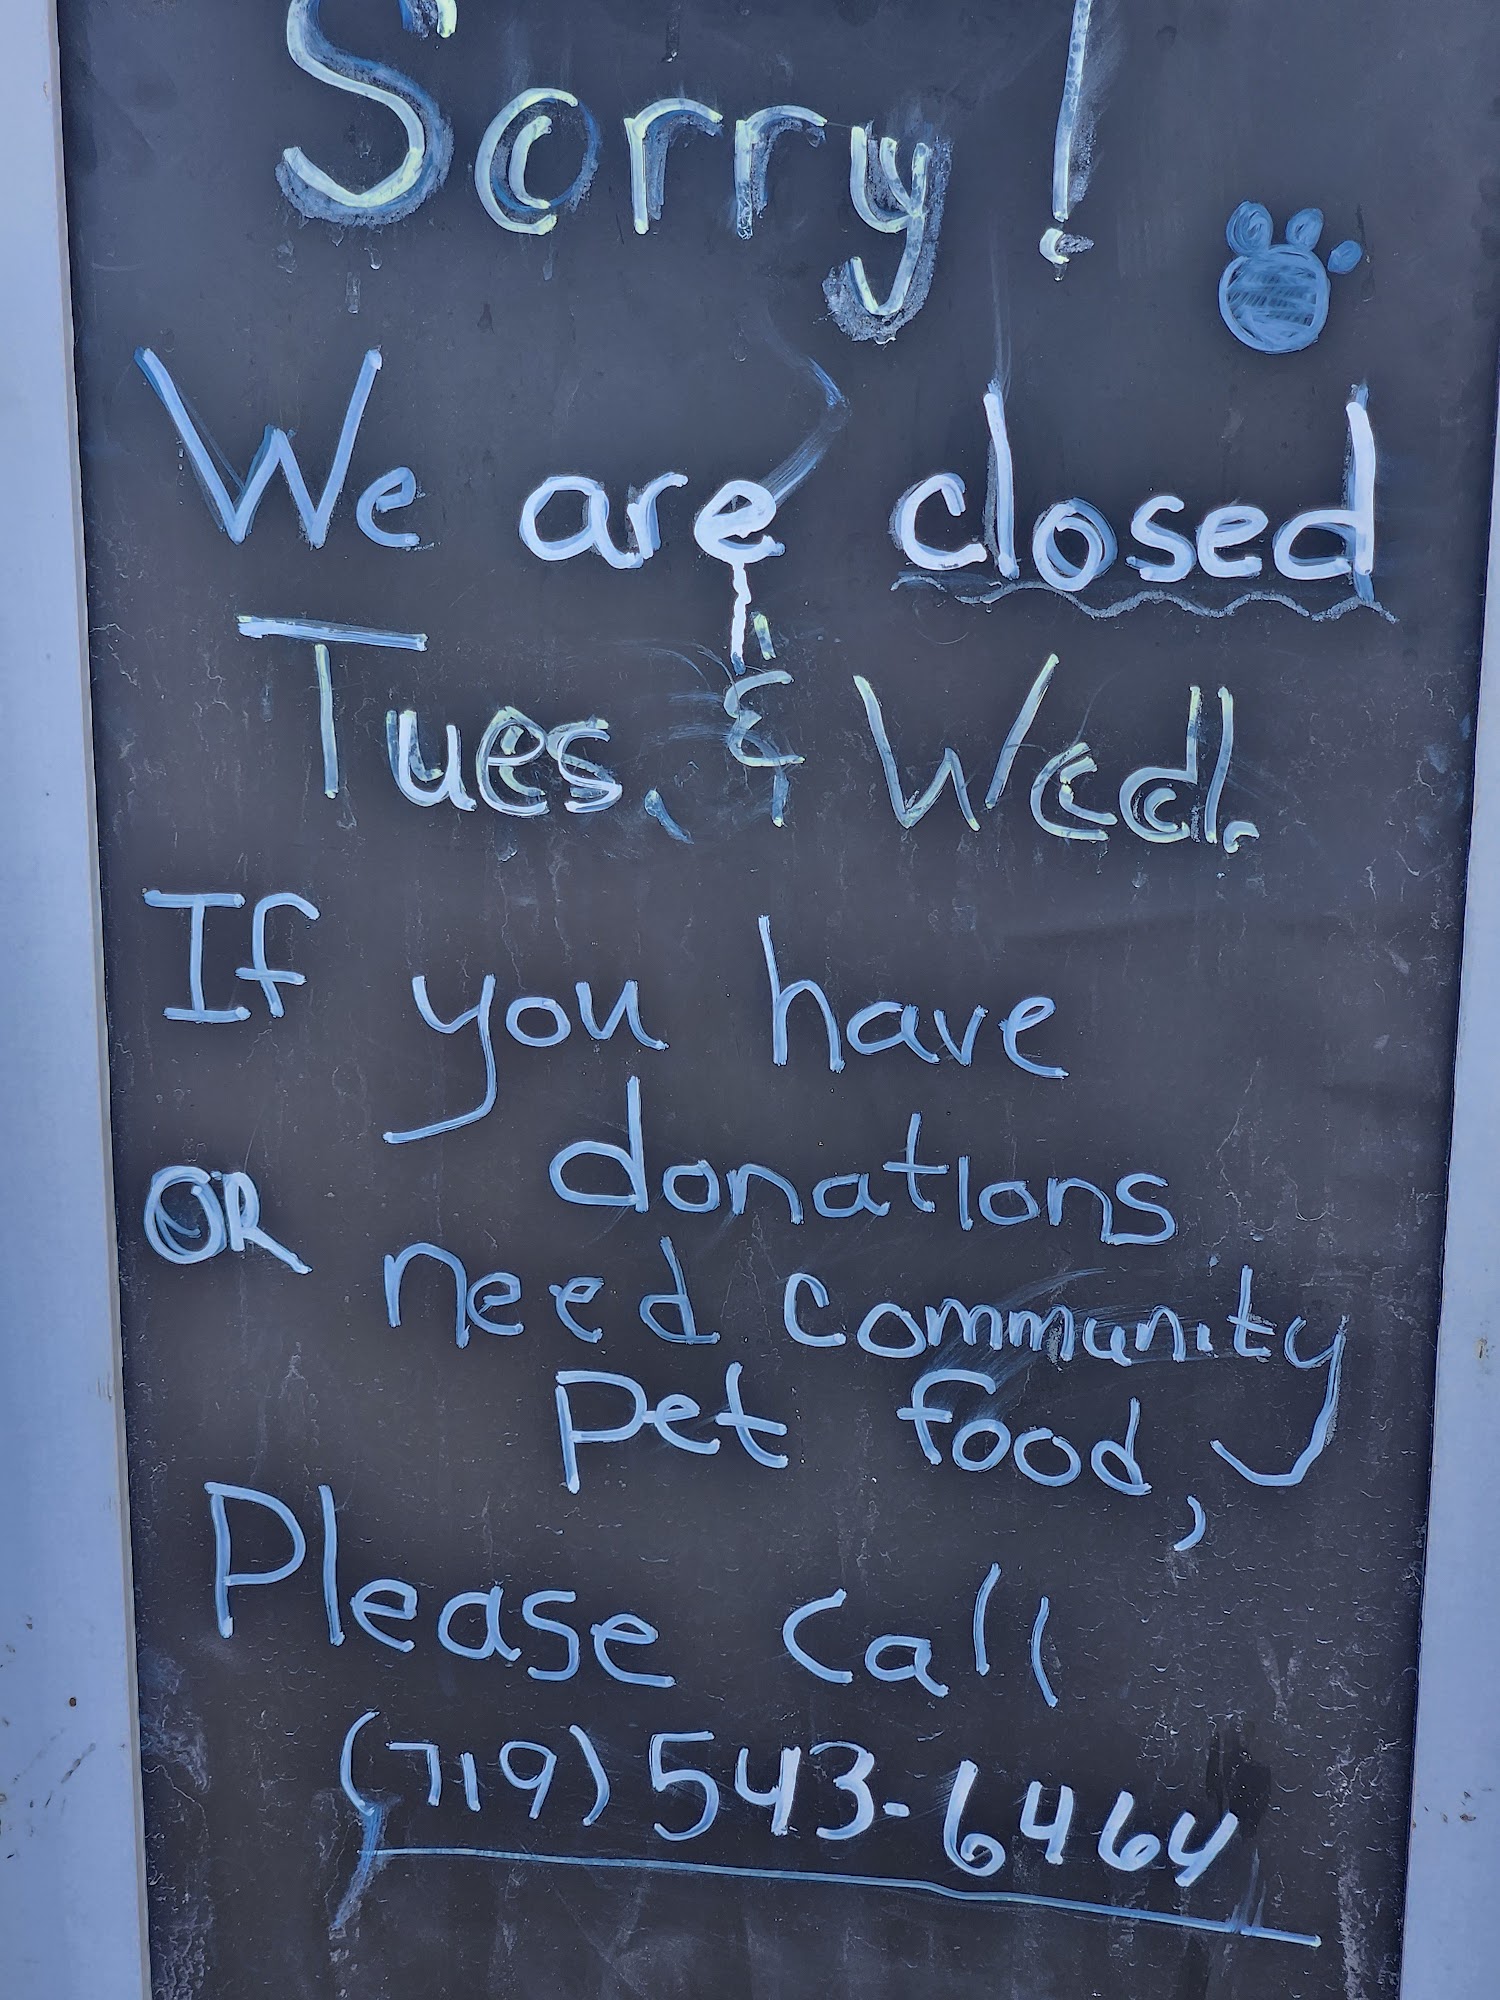 Sorry!
We are closed
Tues. & Wed.
If you have
donations
OR need community
pet food,
Please call
(719) 543-6464